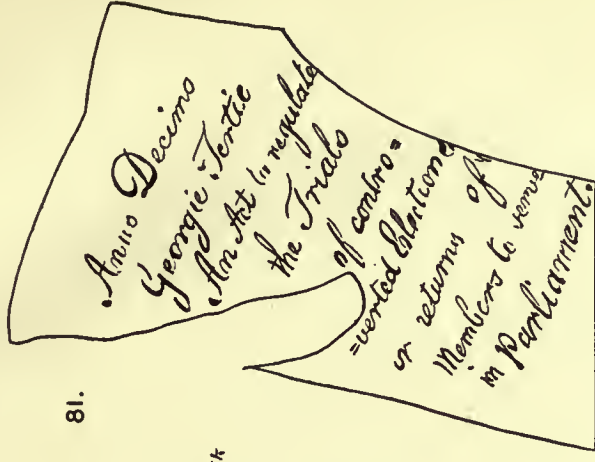 81.
Anno Decimo
Georgie Tertie
An Act to regulate
the Trials
of contro=
=verted Elections
or returns of
Members to serve
in Parliament.